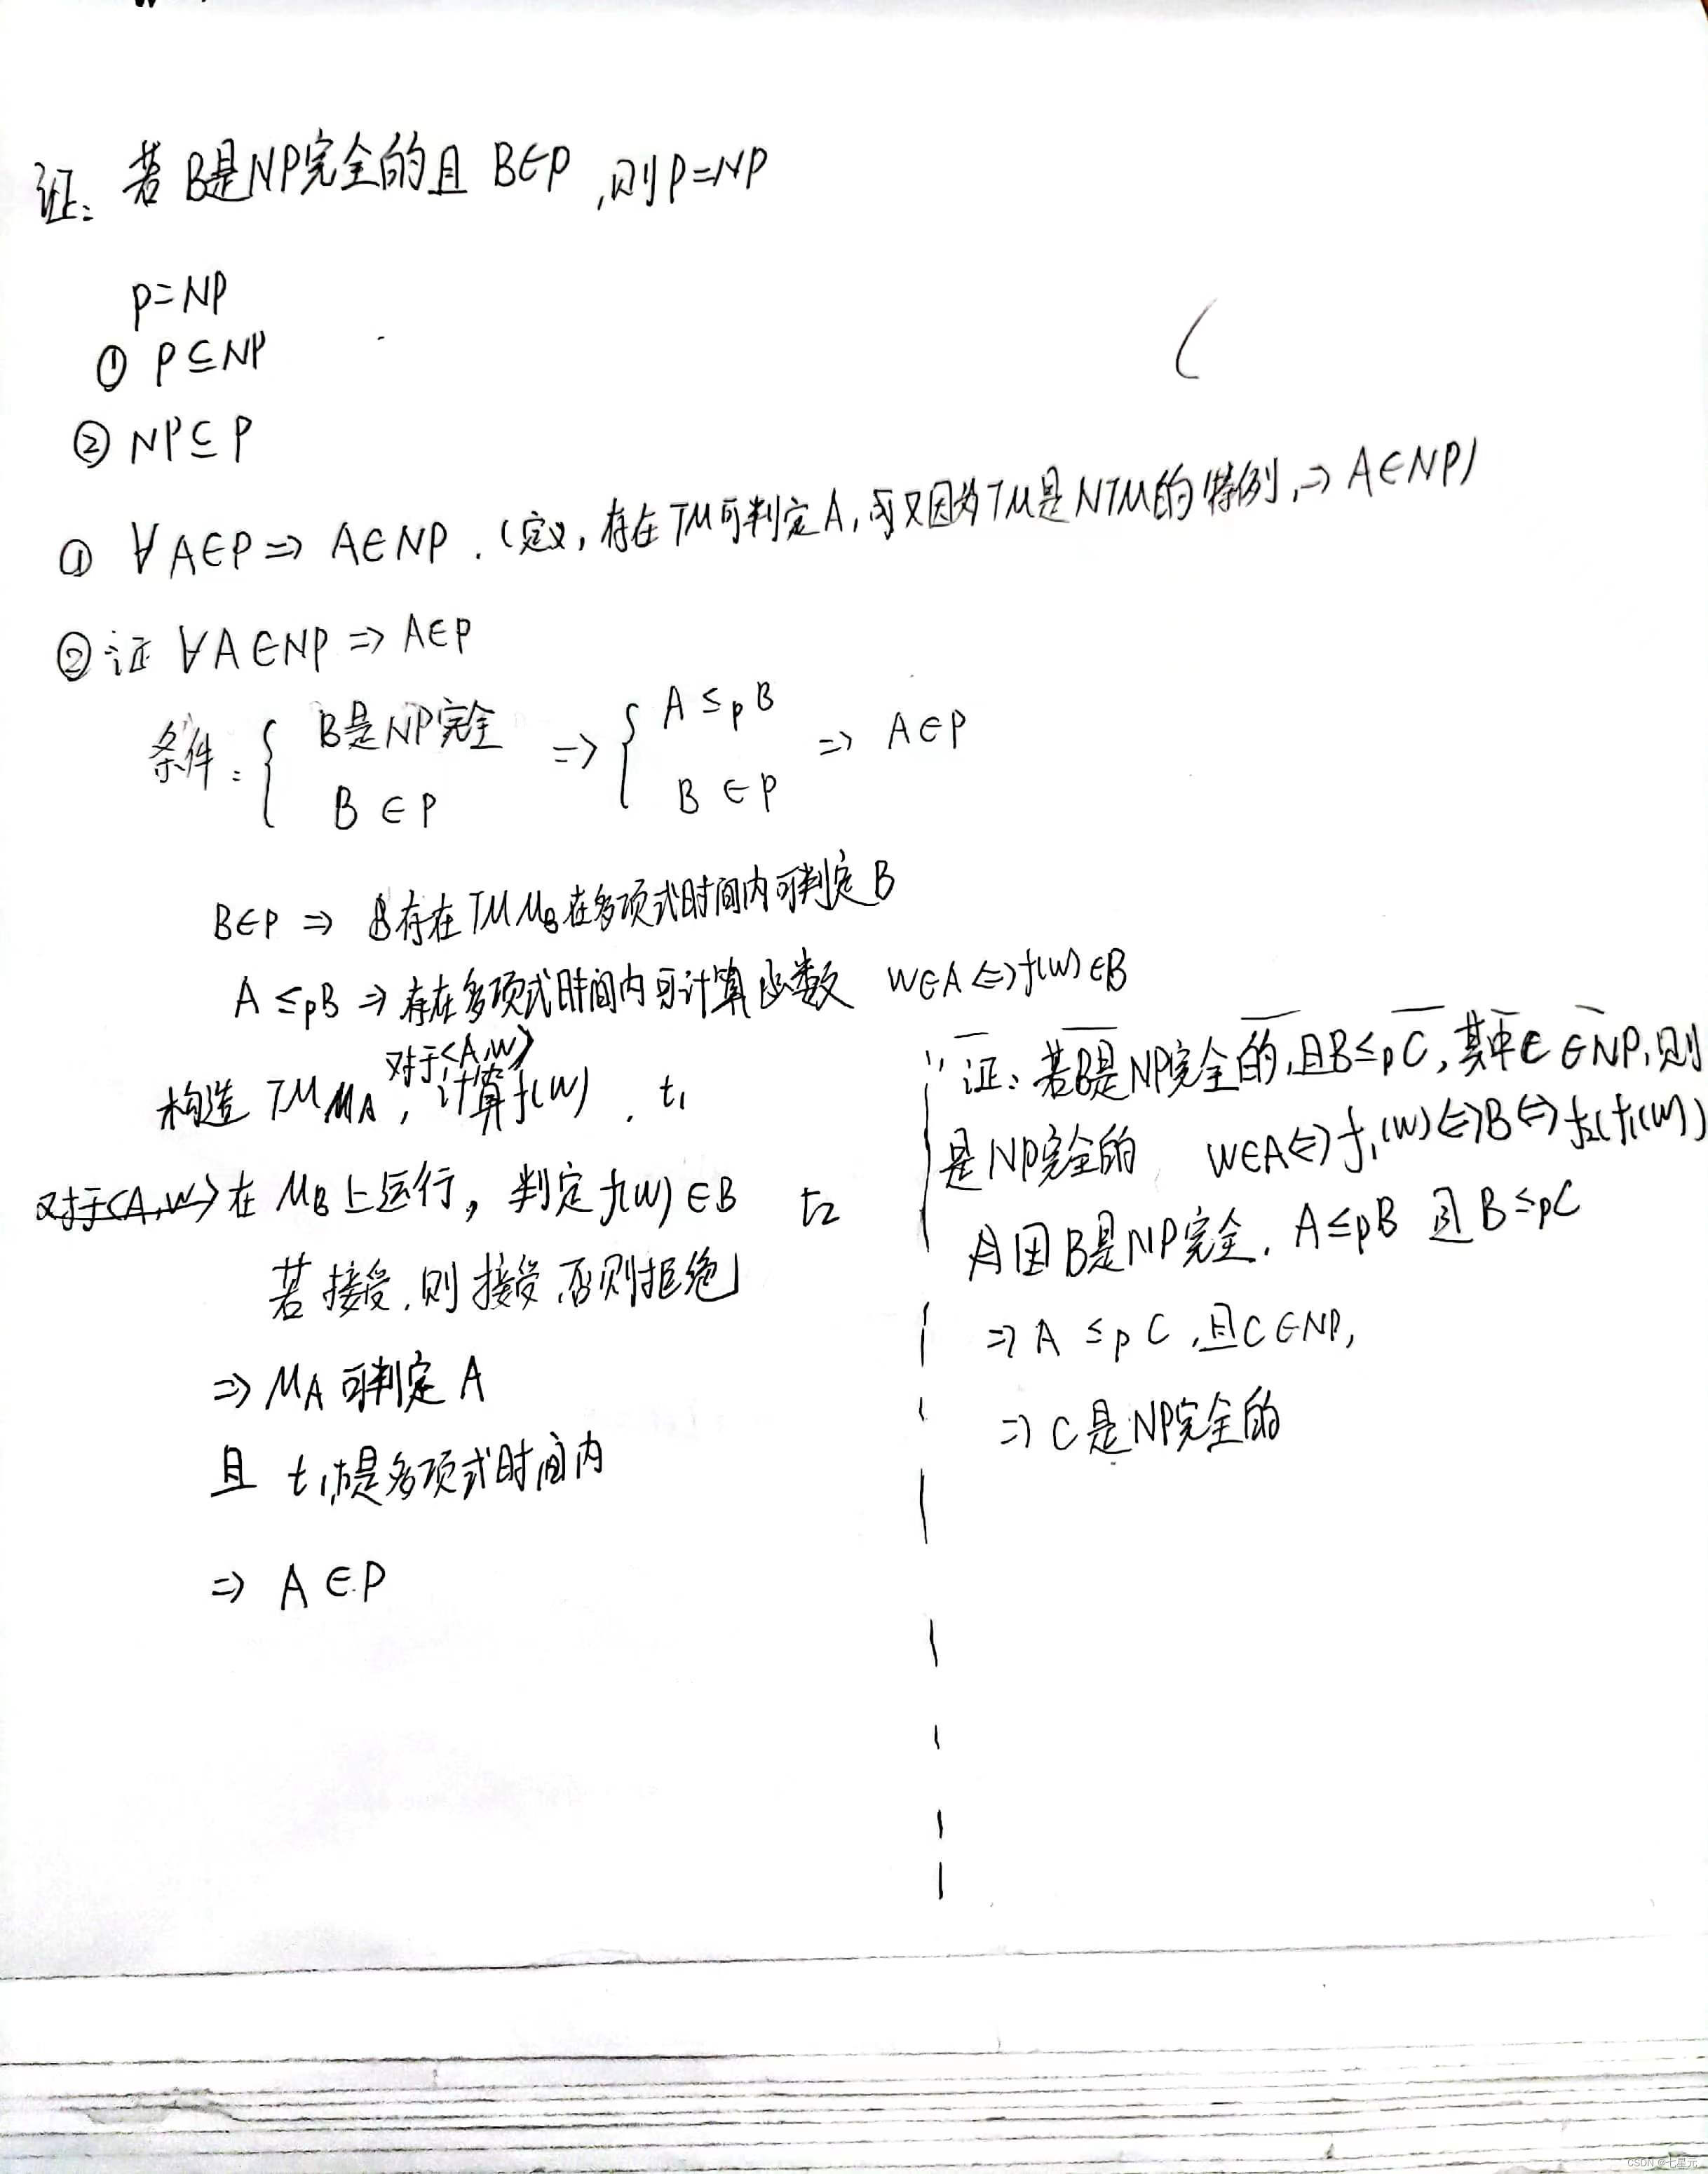 证: 若B是NP完全的且 B∈P ,则P=NP
P=NP
① P⊆NP
② NP⊆P
① ∀A∈P⇒ A∈NP .(定义, 存在TM可判定A, 又因为TM是NTM的特例,⇒ A∈NP)
②证 ∀A∈NP ⇒ A∈P
条件: { B是NP完全 B∈P ⇒ { A ≤p B B∈P ⇒ A∈P
B∈P ⇒ 存在TM MB在多项式时间内可判定B
A ≤pB ⇒ 存在多项式时间内可计算函数 W∈A⇔f(W)∈B
对于<A,W>
构造 TM MA, 计算f(W) . t1
对于<A,W> 在 MB上运行, 判定 f(W)∈B t2
若接受,则接受,否则拒绝
⇒ MA可判定A
且 t1,t2是多项式时间内
⇒ A∈P
证: 若B是NP完全的,且B≤pC, 其中C∈NP,则
是NP完全的 W∈A⇔f1(W)⇔B⇔f2(f1(W))
因B是NP完全. A≤pB 且 B≤pC
⇒ A ≤p C ,且C∈NP,
⇒ C是NP完全的
CSDN @七星元